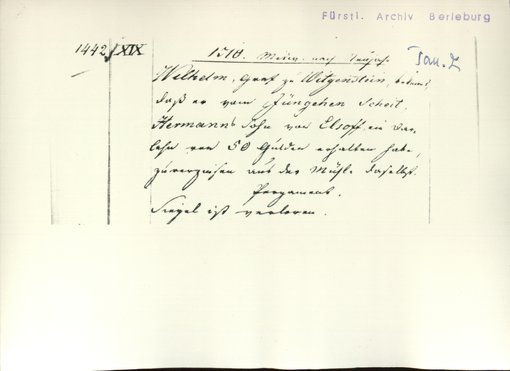 Fürstl. Archiv Berleburg
1442/XIX
1518. Mittw. nach Neujahr. Jan. 7
Wilhelm, Graf zu Witgenstein, bekennt,
daß er vom Jüngchen Schott,
Hermanns Sohn von Elsoff ein Dar-
lehn von 50 Gulden erhalten habe,
zu verzinsen aus der Mühle daselbst.
Pergament.
Siegel ist verloren.